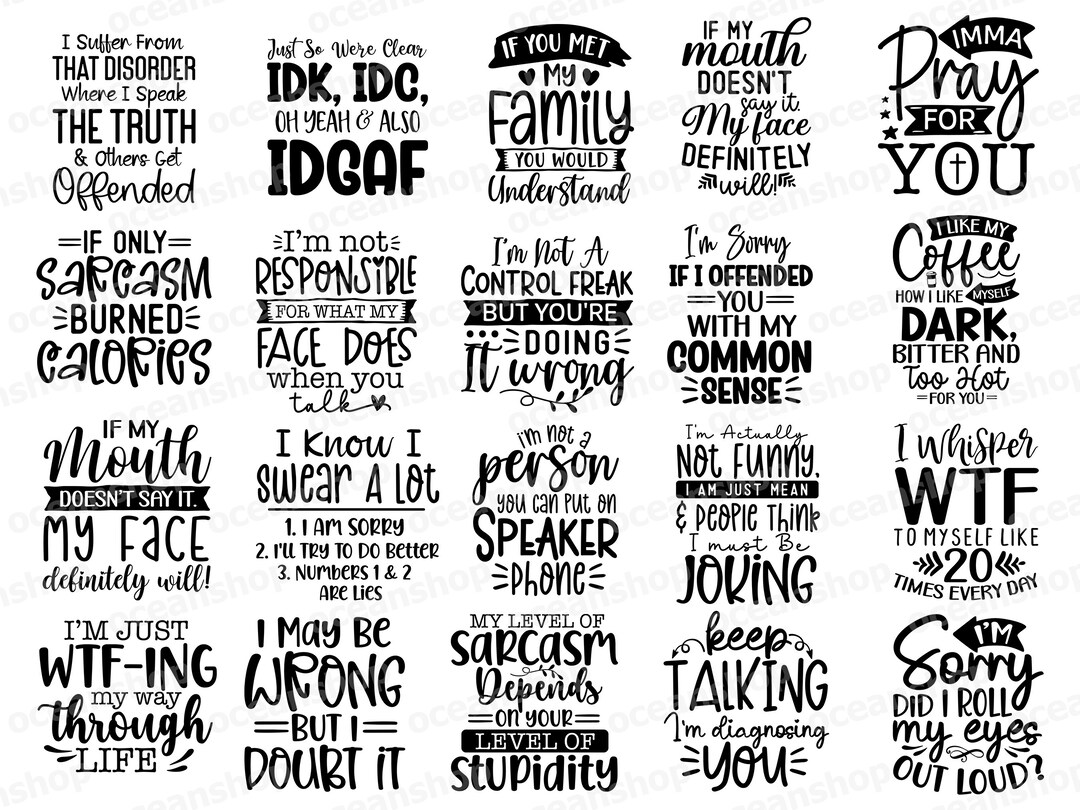 I Suffer From
THAT DISORDER
Where I Speak
THE TRUTH
& Others Get
Offended
Just So Were Clear
IDK, IDC,
OH YEAH & ALSO
IDGAF
IF YOU MET
MY
Family
YOU WOULD
Understand
IF MY
mouth
DOESN'T
say it.
My face
DEFINITELY
will!
IMMA
Pray
FOR
YOU
IF ONLY
SARCASM
BURNED
CALORIES
I'm not
RESPONSIBLE
FOR WHAT MY
FACE DOES
when you
talk
I'm Not A
CONTROL FREAK
BUT YOU'RE
DOING
It wrong
I'm Sorry
IF I OFFENDED
YOU
WITH MY
COMMON
SENSE
I LIKE MY
Coffee
HOW I LIKE MYSELF
DARK,
BITTER AND
Too Hot
FOR YOU
IF MY
Mouth
DOESN'T SAY IT.
MY FACE
definitely will!
I Know I
Swear A Lot
1. I AM SORRY
2. I'll TRY TO DO BETTER
3. NUMBERS 1 & 2
ARE LIES
i'm not a
person
you can put on
SPEAKER
PHONE
I'm Actually
Not Funny.
I AM JUST MEAN
& PEOPLE THINK
I must Be
JOKING
I WHISPER
WTF
TO MYSELF LIKE
20
TIMES EVERY DAY
I'M JUST
WTF-ING
my way
through
LIFE
I MAY BE
WRONG
BUT I
DOUBT IT
MY LEVEL OF
sarcasm
Depends
ON YOUR
LEVEL OF
stupidity
keep
TALKING
I'm diagnosing
YOU
I'M
Sorry
DID I ROLL
my eyes
OUT LOUD?
oceanshop